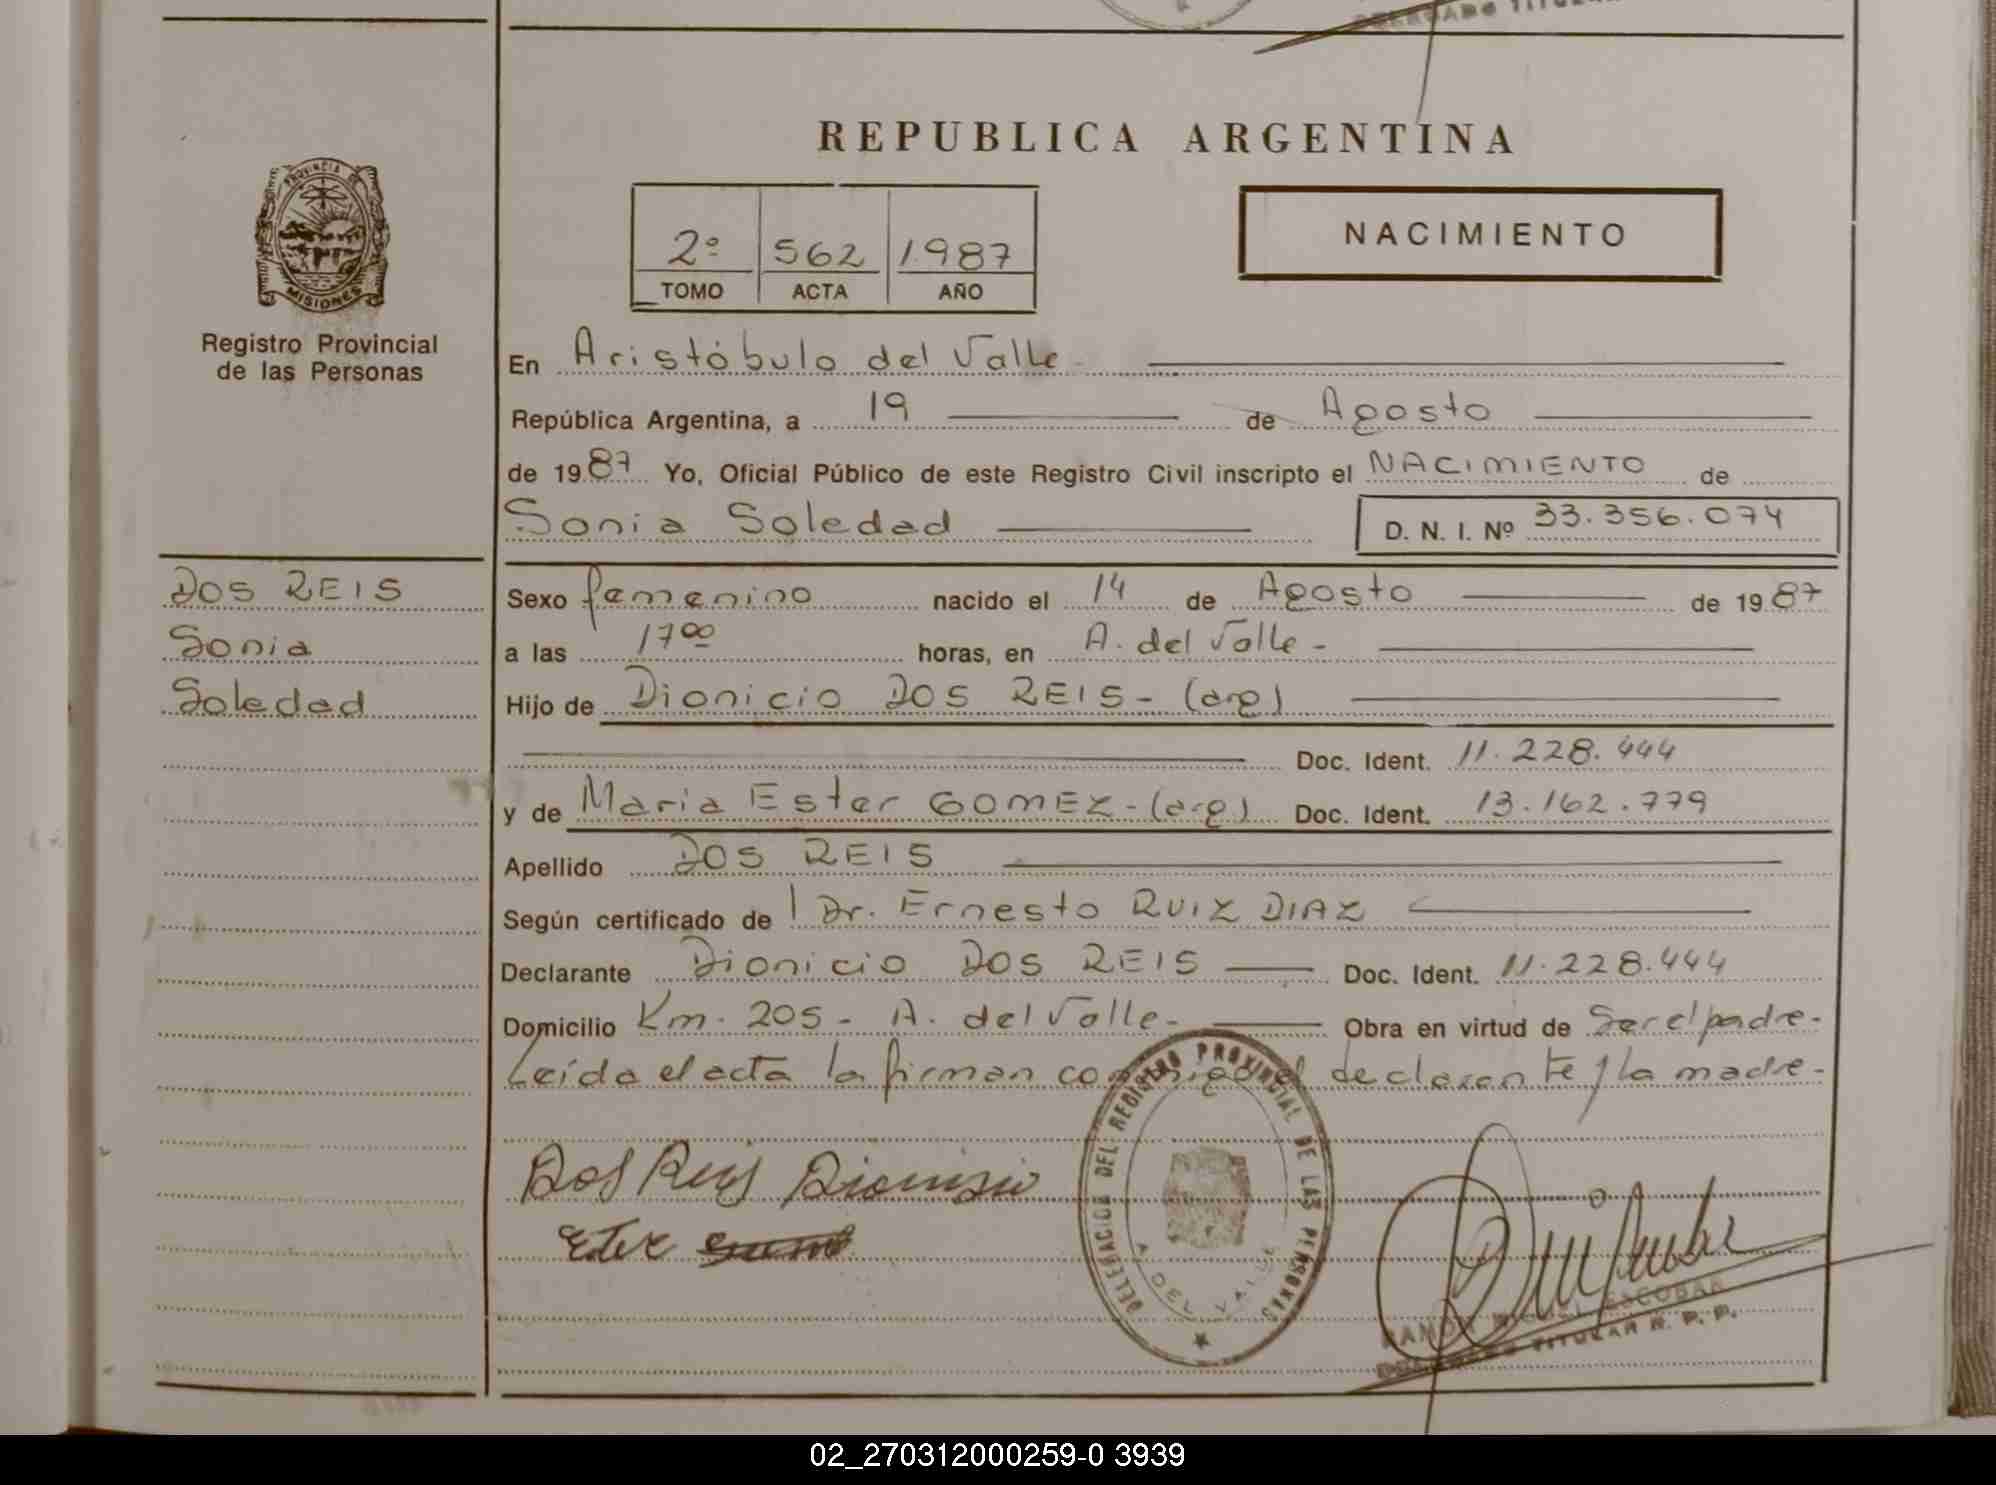 DELEGADO TITULAR
REPUBLICA ARGENTINA
PROVINCIA DE
MISIONES
Registro Provincial
de las Personas
2º 562 1987
TOMO ACTA AÑO
NACIMIENTO
En Aristóbulo del Valle -
República Argentina, a 19 de Agosto
de 1987 Yo, Oficial Público de este Registro Civil inscripto el NACIMIENTO de
Sonia Soledad D. N. I. Nº 33.356.074
DOS REIS
Sonia
Soledad
Sexo femenino nacido el 14 de Agosto de 1987
a las 17 00 horas, en A. del Valle -
Hijo de Dionicio DOS REIS - (arg)
Doc. Ident. 11.228.444
y de Maria Ester GOMEZ - (arg) Doc. Ident. 13.162.779
Apellido DOS REIS
Según certificado de Dr. Ernesto RUIZ DIAZ
Declarante Dionicio DOS REIS Doc. Ident. 11.228.444
Domicilio Km. 205 - A. del Valle - Obra en virtud de Ser el padre -
Leída el acta la firman conmigo el declarante y la madre -
Dos Reis Dionisio
Ester
DELEGACION DEL REGISTRO PROVINCIAL DE LAS PERSONAS
A. DEL VALLE
RAMON MIGUEL ESCOBAR
DELEGADO TITULAR R. P. P.
02_270312000259-0 3939